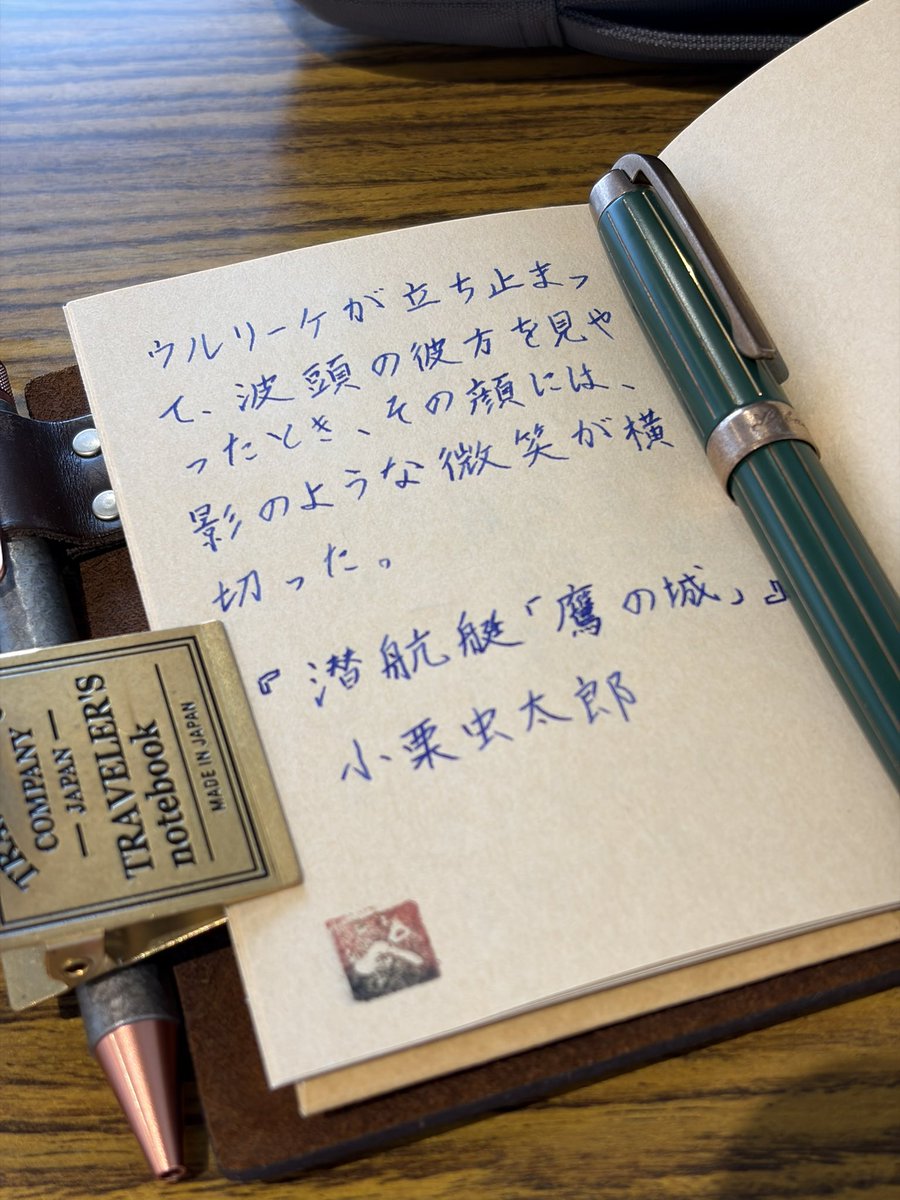 ウルリーケが立ち止まっ
て、波頭の彼方を見や
ったとき、その顔には、
影のような微笑が横
切った。
『潜航艇「鷹の城」』
小栗虫太郎
COMPANY
JAPAN
TRAVELER'S
notebook
MADE IN JAPAN